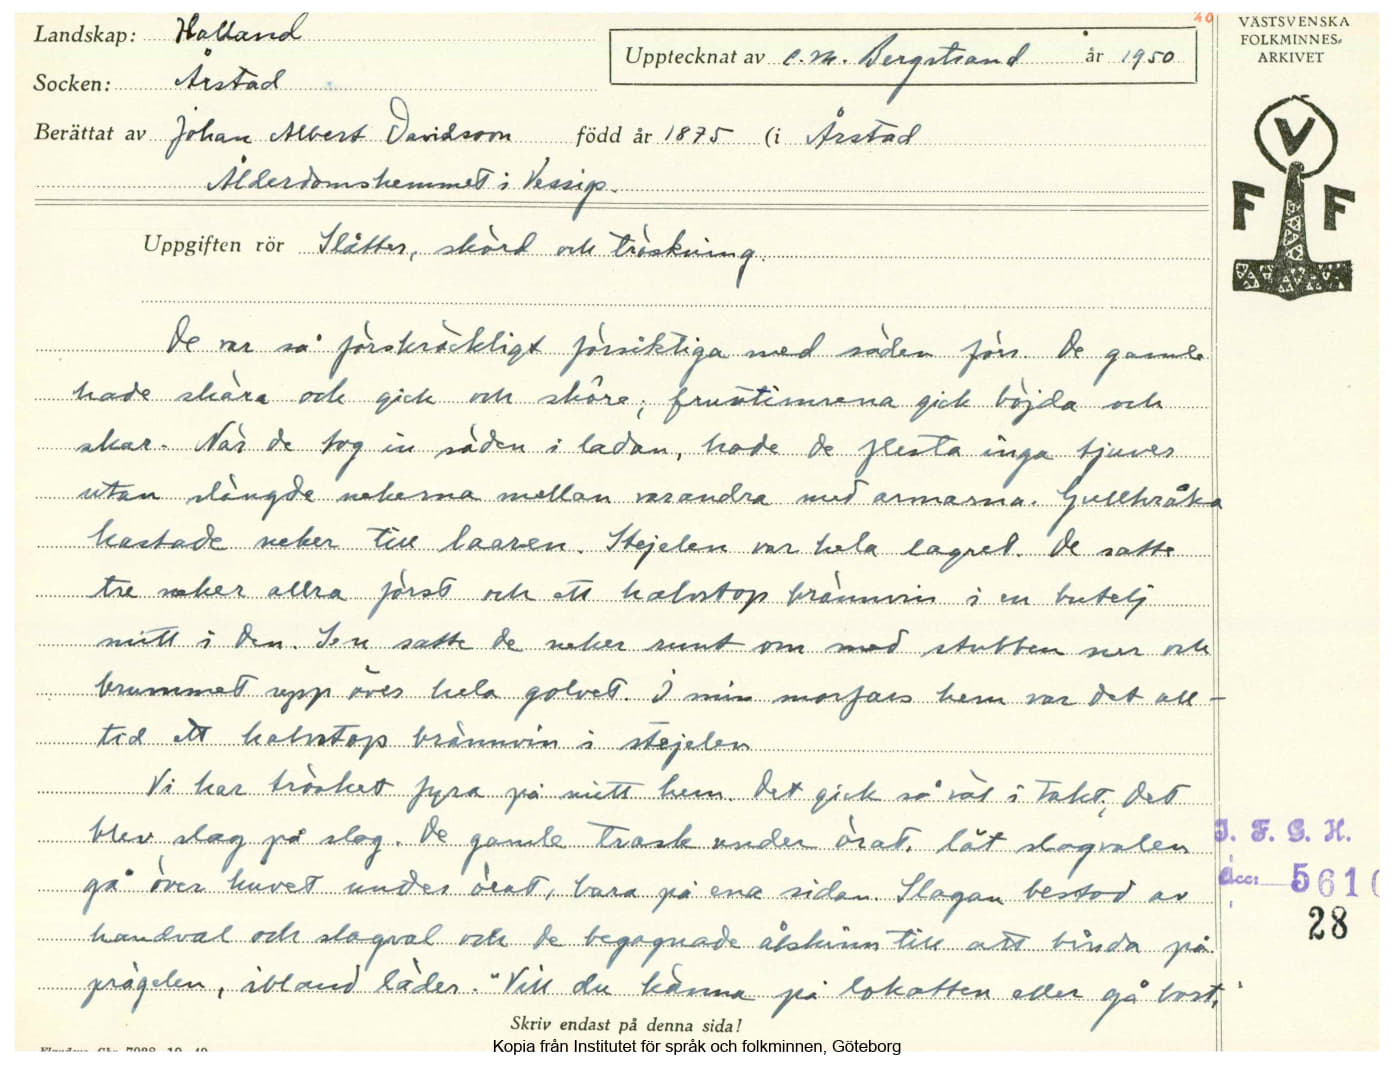 40
VÄSTSVENSKA
FOLKMINNES-
ARKIVET
Landskap: Halland
Upptecknat av C. M. Bergstrand år 1950
Socken: Årstad
Berättat av Johan Albert Davidsson född år 1875 (i Årstad
Ålderdomshemmet i Vessige.
V
F F
Uppgiften rör Slåtter, skörd och tröskning.
De var så förskräckligt försiktiga med säden förr. De gamle
hade skära och gick och skôre; fruntimrena gick böjda och
skar. När de tog in säden i ladan, hade de flesta inga tjuver
utan slängde nekerna mellan varandra med armarna. Gullkråka
kastade neker till laaren. Stejelen var hela lagret. De satte
tre neker allra först och ett halvstop brännvin i en butelj
mitt i den. Sen satte de neker runt om med stubben ner och
brummet upp över hela golvet. I min morfars hem var det all-
tid ett halvstop brännvin i stejelen
Vi har trösket fyra på mitt hem. Det gick så väl i takt, det
blev slag på slag. De gamle trask under örat, lät slagvalen
gå över huvet under örat, bara på ena sidan. Slagan bestod av
handval och slagval och de begagnade ålskinn till att binda på
prägelen, ibland läder. "Vill du känna på lokatten eller gå bort,"
I. F. G. H.
Acc: 5610
28
Skriv endast på denna sida!
Kopia från Institutet för språk och folkminnen, Göteborg